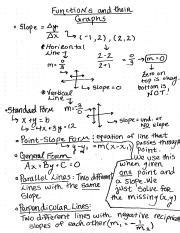 Functions and their
Graphs
• Slope = Δy/Δx → (-1, 2), (2, 2)
• Horizontal
Line
m = 0/3
2-2/2-1 = 0/3 → m=0
Zero on
top is okay,
bottom is
NOT!
• Vertical
Line
m = 3/0
slope = und. or
no slope
• Standard Form
x + y = b
→ 4x + 3 = 12
• Point-Slope Form: equation of line
that passes
y-y₁ = m(x-x₁) through points
• General Form
Ax + By + C = 0
We use this
when given
one point and
a slope. We
just solve for
the missing (x,y)
• Parallel Lines: Two different
lines with the same
slope.
• Perpendicular Lines:
Two different lines with negative reciprocal
slopes of each other